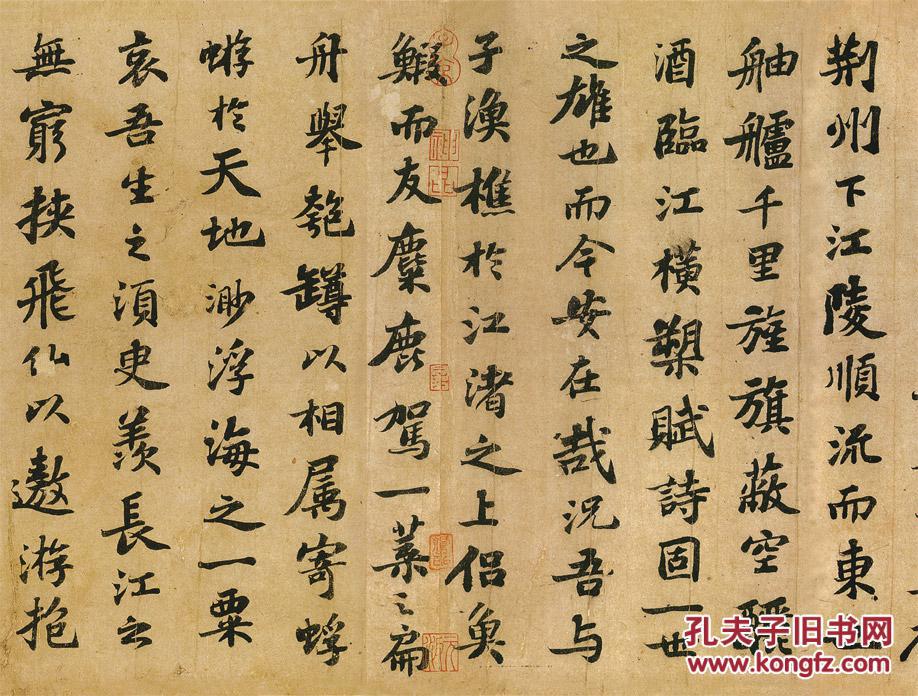 荆州下江陵順流而東也
舳艫千里旌旗蔽空釃
酒臨江橫槊賦詩固一世
之雄也而今安在哉況吾與
子漁樵於江渚之上侶魚
鰕而友麋鹿駕一葉之扁
舟舉匏罇以相属寄蜉
蝣於天地渺浮海之一粟
哀吾生之須臾羨長江之
無窮挾飛仙以遨游抱
孔夫子旧书网
www.kongfz.com